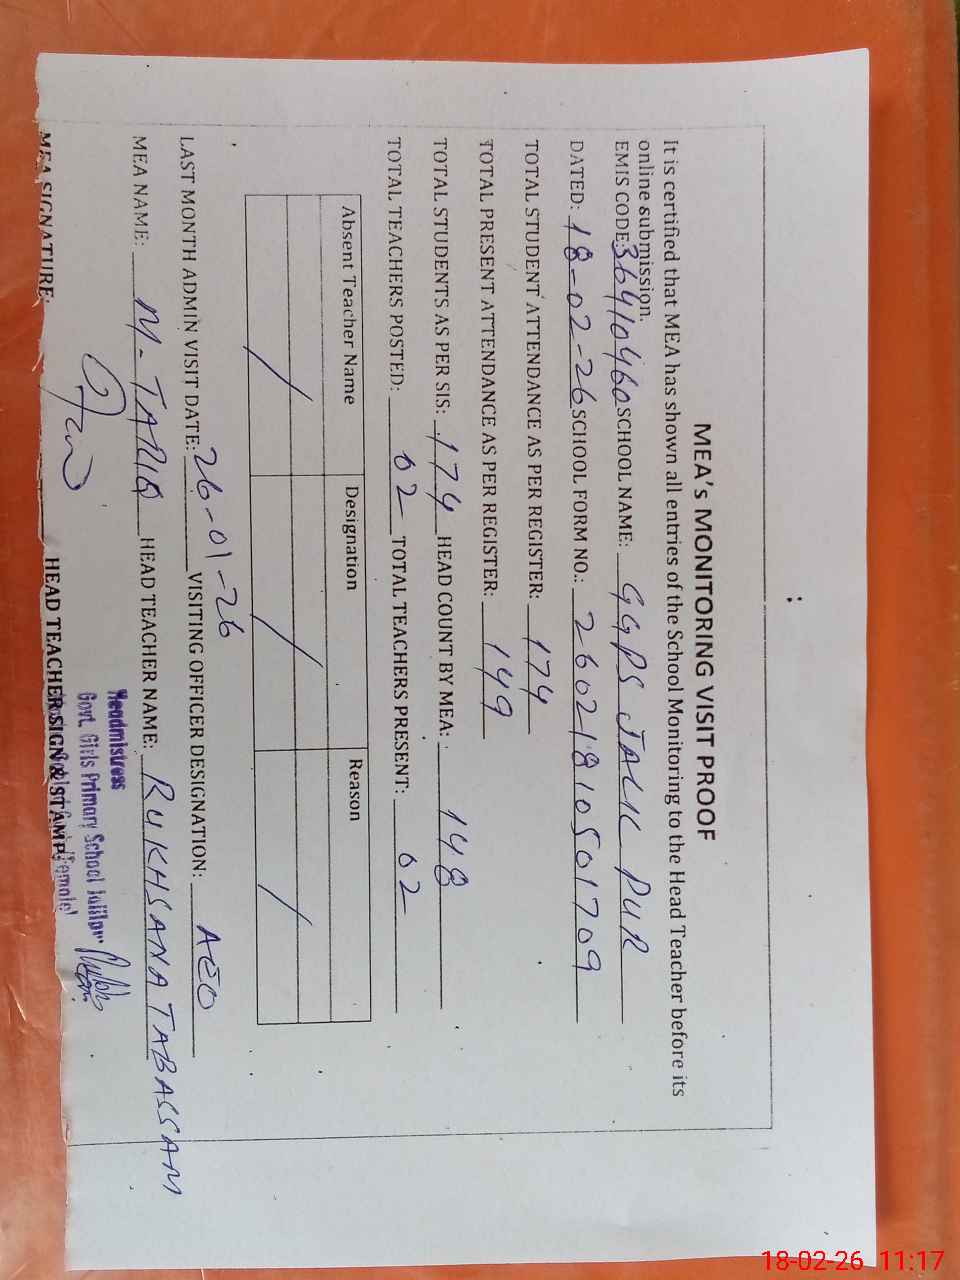 MEA's MONITORING VISIT PROOF
It is certified that MEA has shown all entries of the School Monitoring to the Head Teacher before its
online submission.
EMIS CODE: 36410460 SCHOOL NAME: GGPS JALIL PUR
DATED: 18-02-26 SCHOOL FORM NO.: 26021810501709
TOTAL STUDENT ATTENDANCE AS PER REGISTER: 174
TOTAL PRESENT ATTENDANCE AS PER REGISTER: 149
TOTAL STUDENTS AS PER SIS: 174 HEAD COUNT BY MEA: 148
TOTAL TEACHERS POSTED: 02 TOTAL TEACHERS PRESENT: 02
Absent Teacher Name Designation Reason
/ / /
LAST MONTH ADMIN VISIT DATE: 26-01-26 VISITING OFFICER DESIGNATION: AEO
MEA NAME: M. TARIQ HEAD TEACHER NAME: RUKHSANA TABASSAM
Headmistress
Govt. Girls Primary School Jalilpur
MEA SIGNATURE: HEAD TEACHER SIGN & STAMP:
18-02-26 11:17